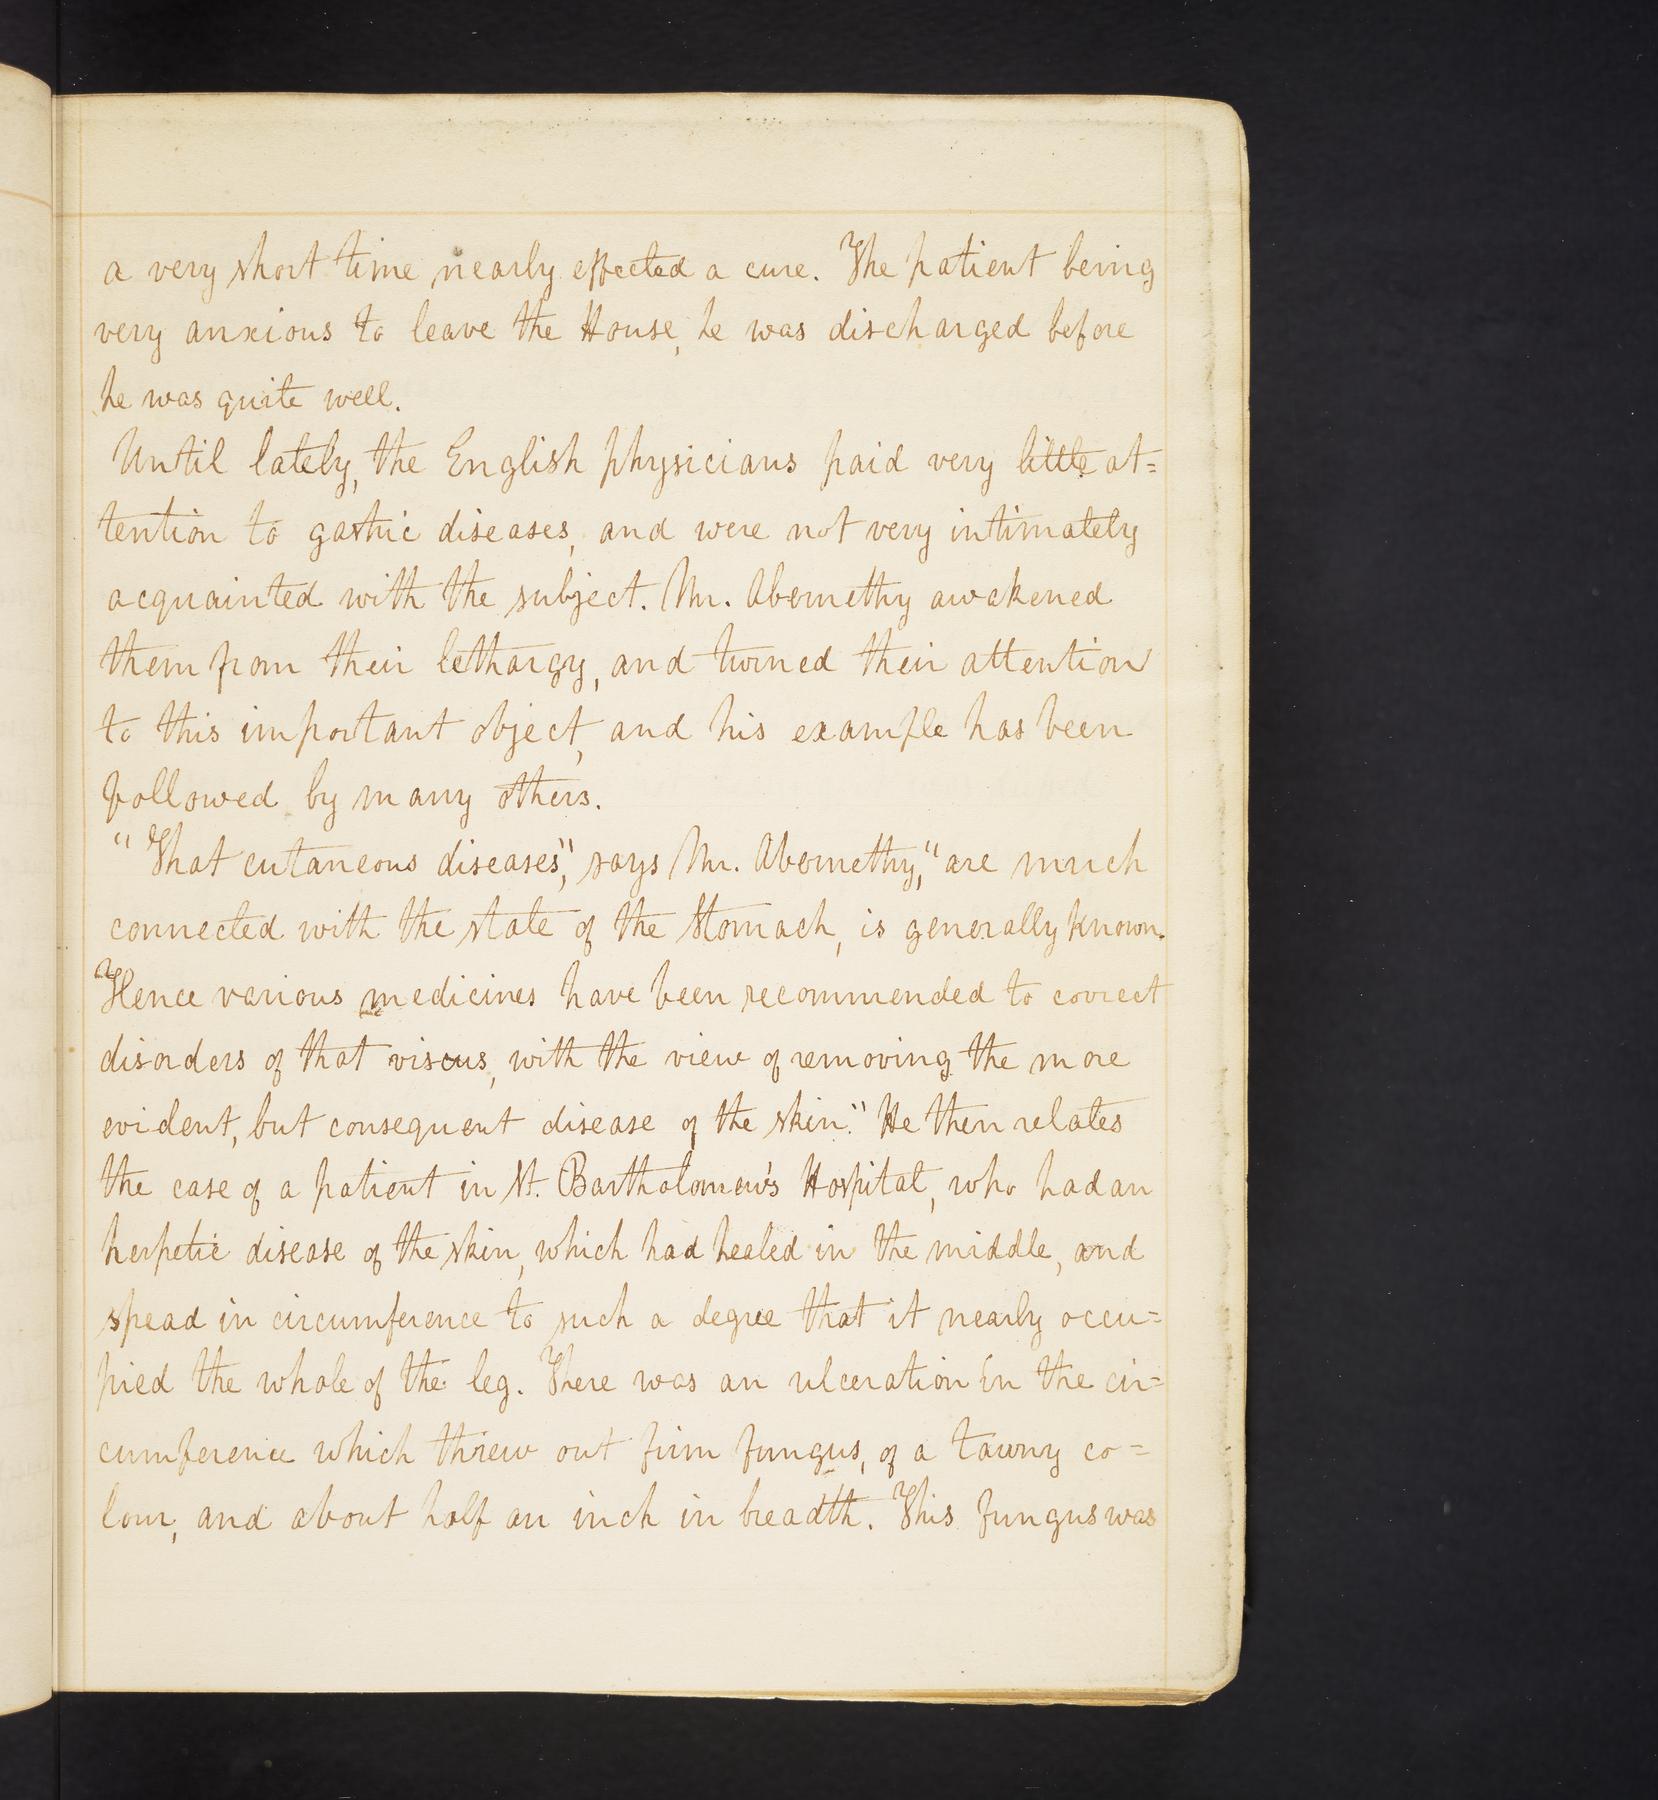 a very short time nearly effected a cure. The patient being
very anxious to leave the House, he was discharged before
he was quite well.
Until lately, the English physicians paid very little at=
tention to gastric diseases, and were not very intimately
acquainted with the subject. Mr. Abernethy awakened
them from their lethargy, and turned their attention
to this important object, and his example has been
followed by many others.
"That cutaneous diseases," says Mr. Abernethy, "are much
connected with the state of the Stomach, is generally known.
Hence various medicines have been recommended to correct
disorders of that viscus, with the view of removing the more
evident, but consequent disease of the skin." He then relates
the case of a patient in St. Bartholomew's Hospital, who had an
herpetic disease of the skin, which had healed in the middle, and
spead in circumference to such a degree that it nearly occu=
pied the whole of the leg. There was an ulceration in the cir=
cumference which threw out firm fungus, of a tawny co=
lour, and about half an inch in breadth. This fungus was